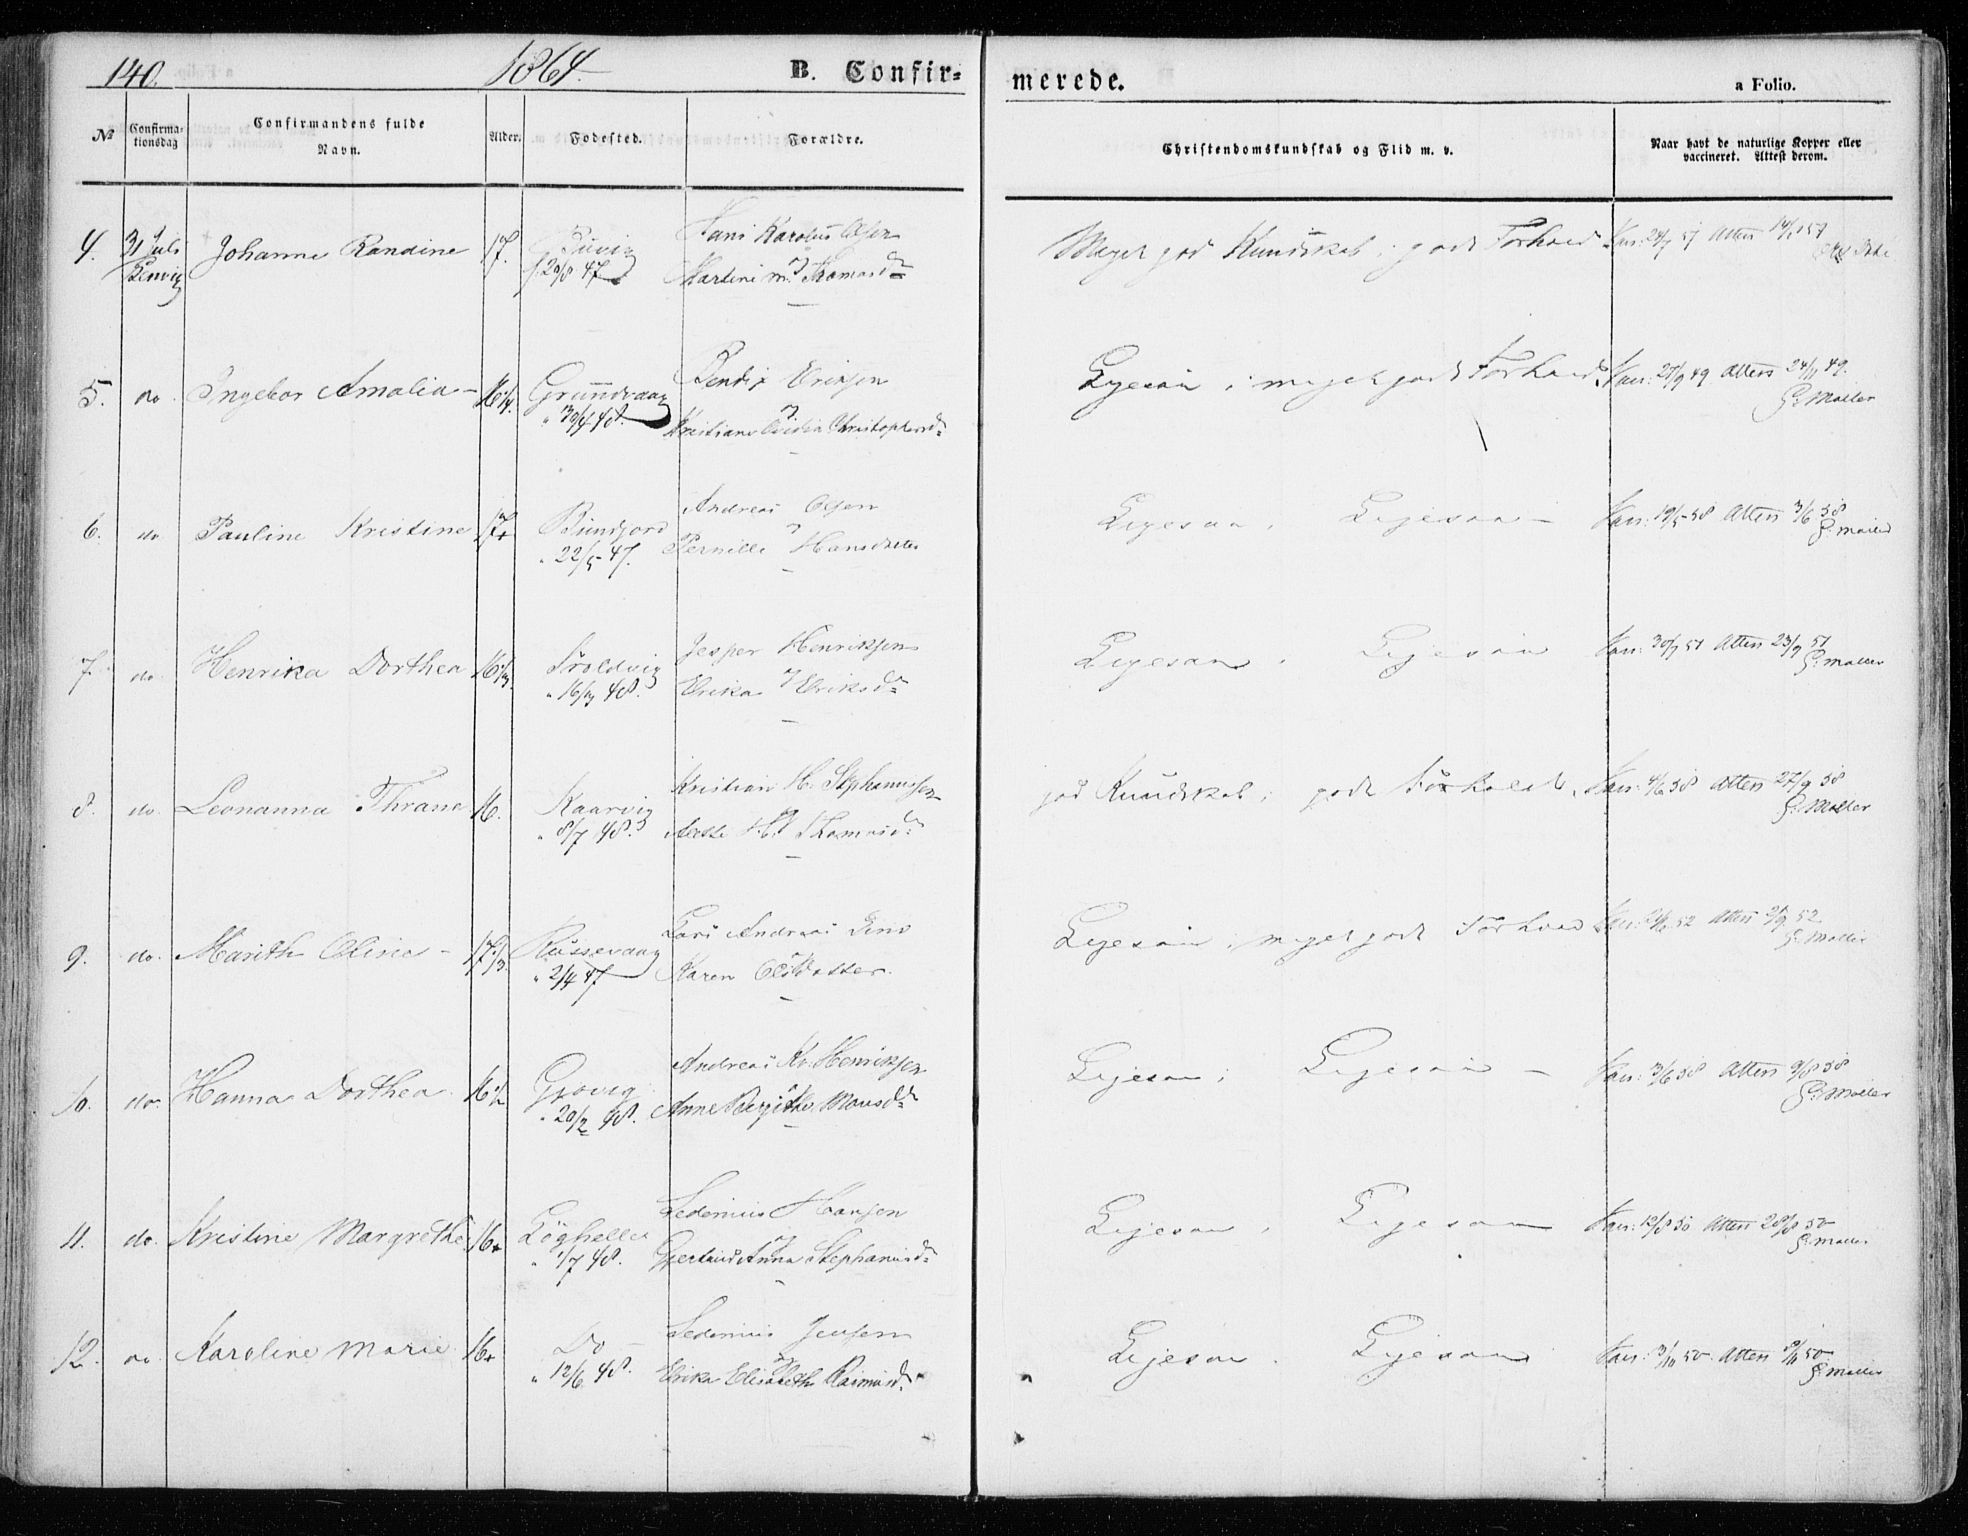 140.
1864.
B. Confir=
merede.
a Folio.
№
Confirma-
tionsdag
Confirmandens fulde
Navn.
Alder.
Fødested.
Forældre.
Christendomskundskab og Flid m. v.
Naar havt de naturlige Kopper eller
vaccineret. Attest derom.
4. 31 Juli Johanne Randine 17. Hans Karolus Olsen
20/8 47 Martine M. Thomasd.
Meget god Kundskab; godt Forhold. 14/7 57
5. do. Ingebor Amalia – 16 1/4. Grundvaag Bendix Eriksen
30/4 48. Christophersd.
Ligesaa; meget godt Forhold. Vac: 27/9 49 Attest 24/11 49.
G. Møller
6. do Pauline Kristine 17+ Bundfjord Andreas Olsen
22/5 47. Pernille Hansdatter
Ligesaa; Ligesaa – Vac: 19/5 58 Attest 3/6 58
G. Møller
7. do. Henrika Dorthea 16 1/3. Troldvig Jesper Henriksen
16/3 48. Erika Eriksd.
Ligesaa; Ligesaa Vac: 30/7 51 Attest 23/9 51
G. Møller
8. do. Leonanna Thrane 16. Kaarvig Kristian H. Stephanussen
8/7 48. Thomasd.
god Kundskab; godt Forhold. Vac: 4/6 58 Attest 27/9 58
G. Møller
9. do. Marith Oline – 17 1/3. Russevaag Lars Andreas
2/4 47 Karen Olsdatter.
Ligesaa; meget godt Forhold 52 Attest 52
G. Møller
10. do. Hanna Dorthea. 16 1/2 Gjøvig Andreas Kr. Henriksen
20/2 48. Anne Bergithe Monsd.
Ligesaa; Ligesaa – Vac: 3/6 58 Attest 9/8 58
G. Møller
11. do. Kristine Margrethe 16+ Løghelle Sedenius Hansen
1/7 48. Anna Stephanusd.
Ligesaa; Ligesaa Vac: 12/8 50 Attest 28/8 50
G. Møller
12. do. Karoline Marie 16+ Do – Sedenius Jensen
12/6 48. Erika Elisabeth Rasmusd.
Ligesaa. Ligesaa Vac: 3/10 50 Attest 9/11 50
G. Møller